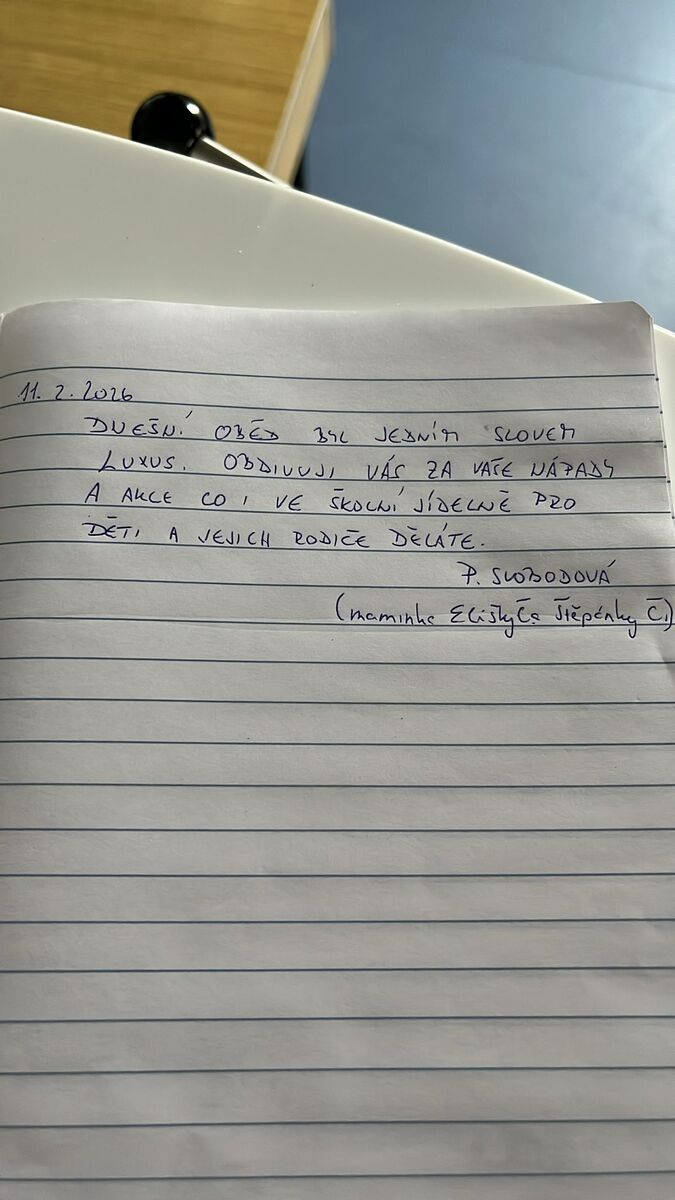 11. 2. 2026
DNEŠNÍ OBĚD BYL JEDNÍM SLOVEM
LUXUS. OBDIVUJI VÁS ZA VAŠE NÁPADY
A AKCE CO I VE ŠKOLNÍ JÍDELNĚ PRO
DĚTI A JEJICH RODIČE DĚLÁTE.
P. SLOBODOVÁ
(maminka Elišky Č. Štěpánky Č.)